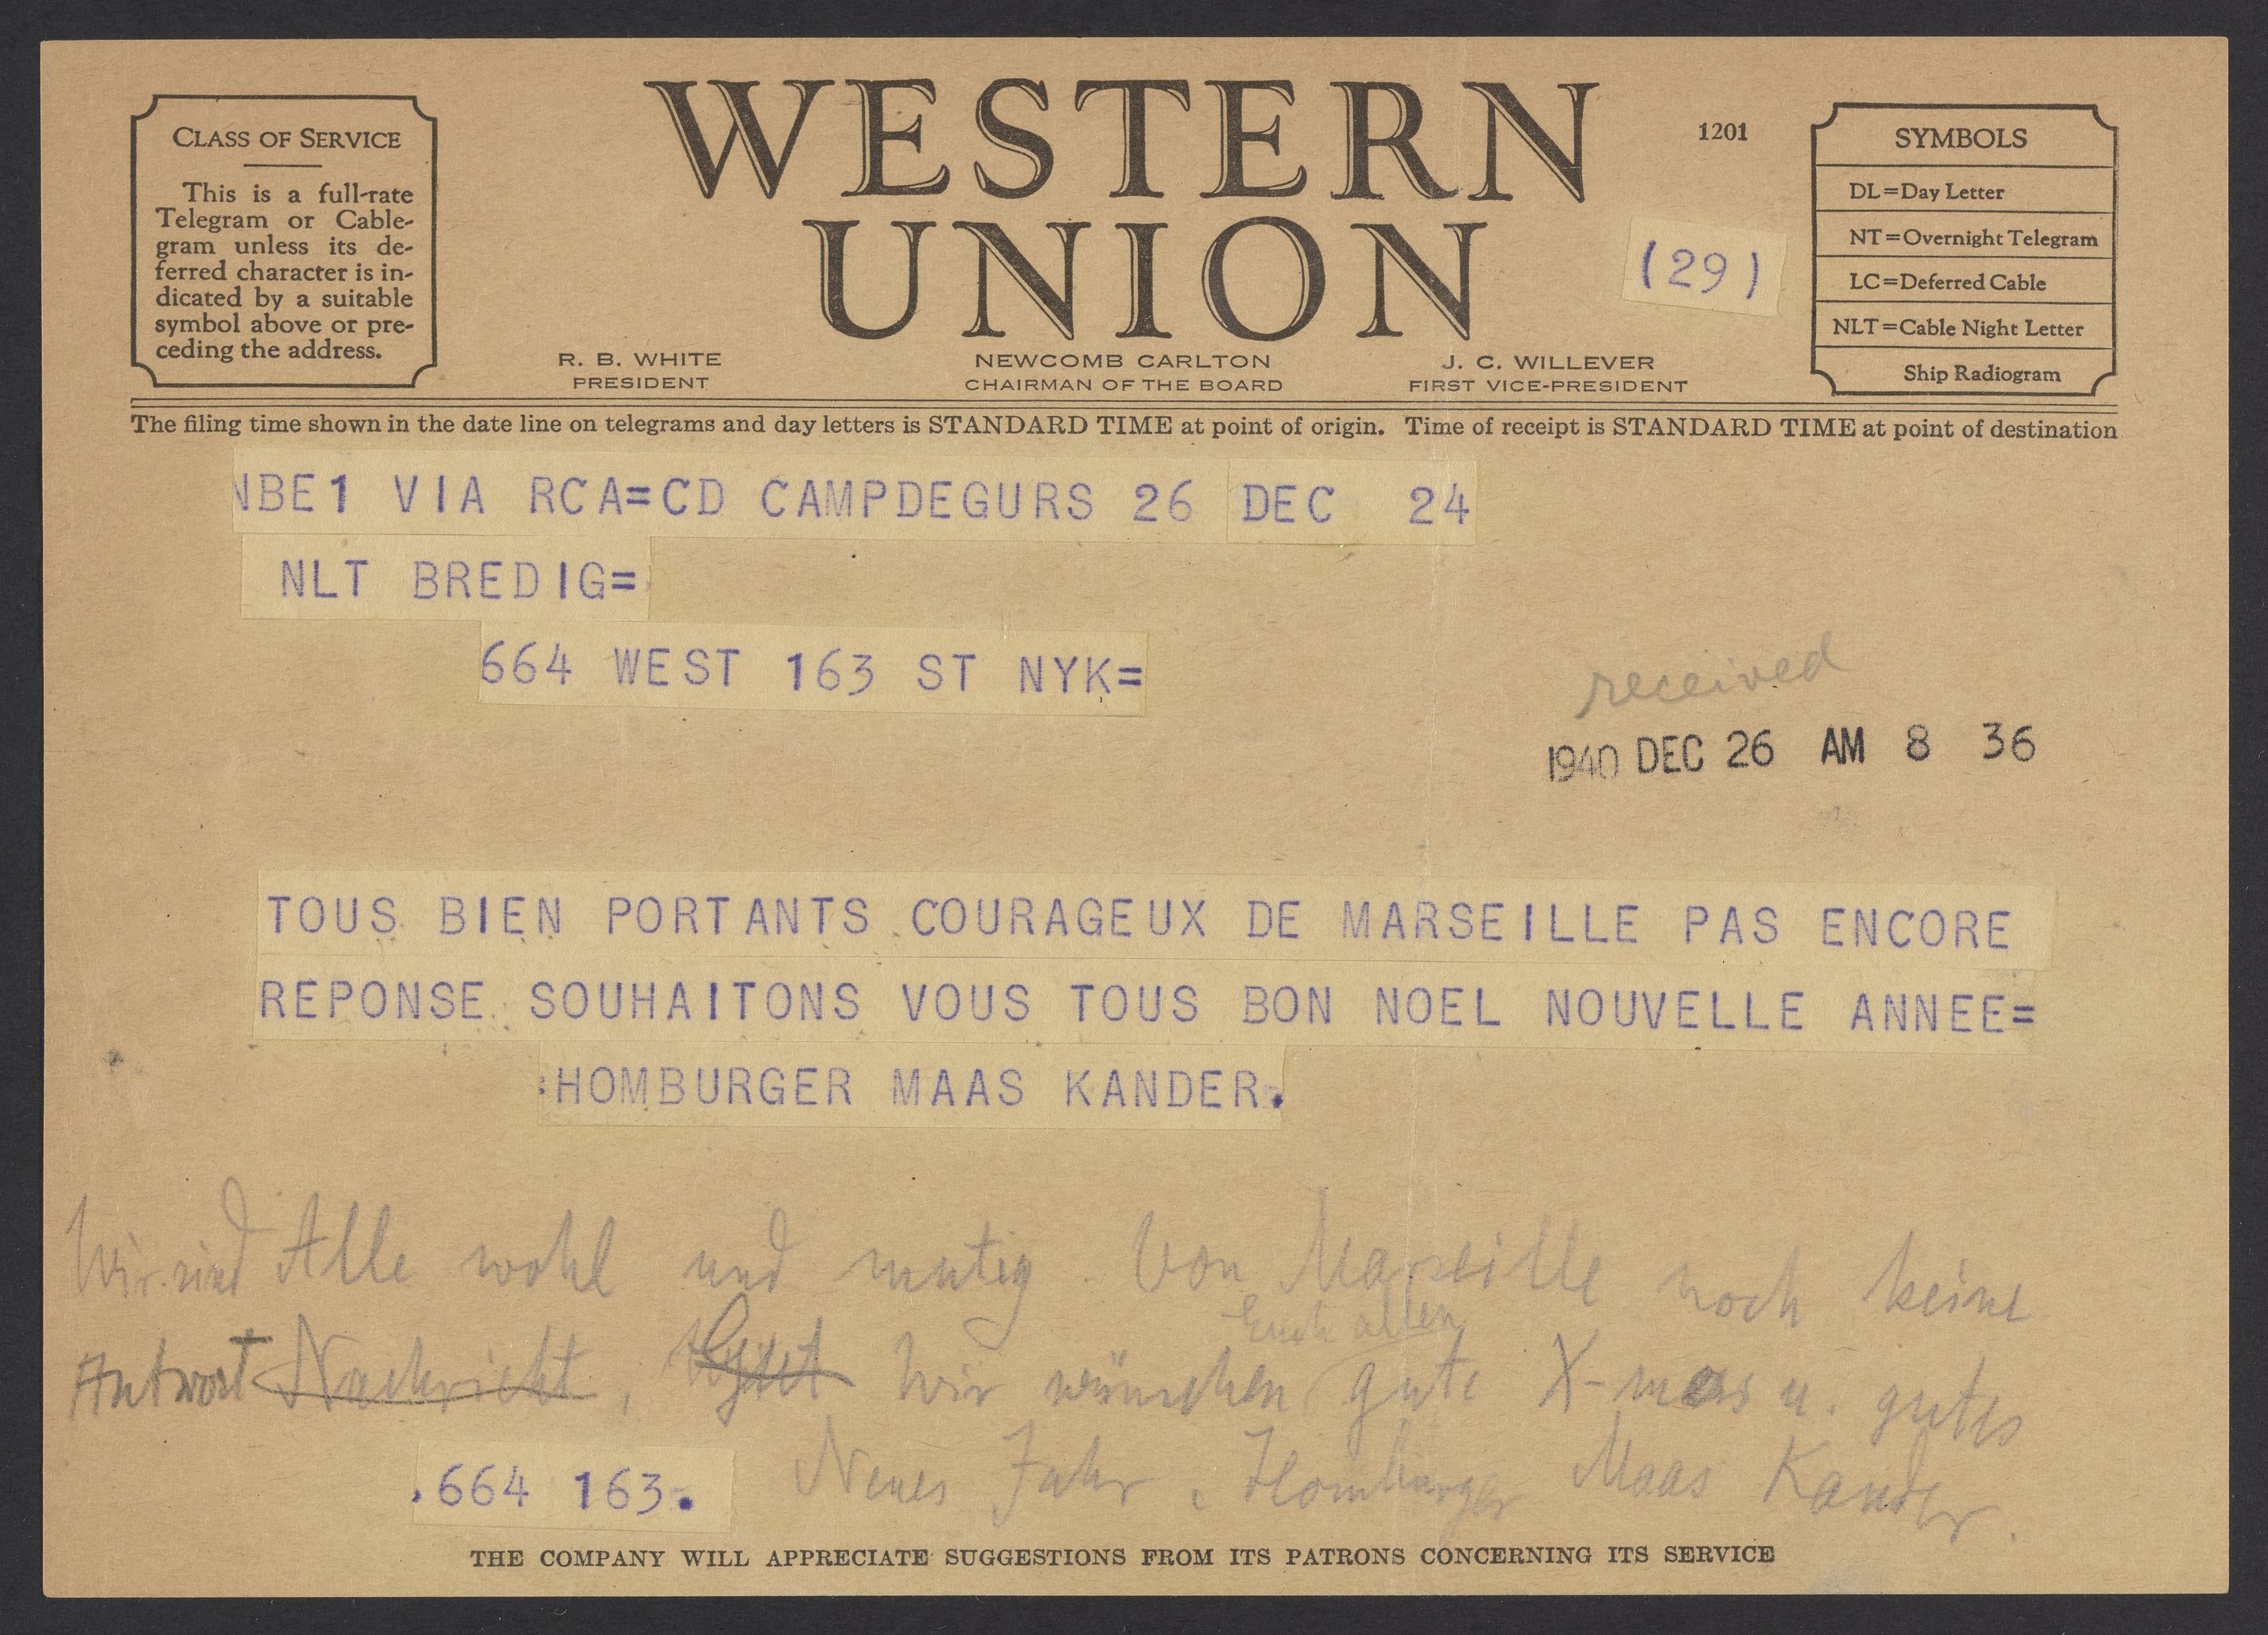 CLASS OF SERVICE
This is a full-rate
Telegram or Cable-
gram unless its de-
ferred character is in-
dicated by a suitable
symbol above or pre-
ceding the address.
WESTERN
UNION
1201
(29)
SYMBOLS
DL=Day Letter
NT=Overnight Telegram
LC=Deferred Cable
NLT=Cable Night Letter
Ship Radiogram
R. B. WHITE
PRESIDENT
NEWCOMB CARLTON
CHAIRMAN OF THE BOARD
J. C. WILLEVER
FIRST VICE-PRESIDENT
The filing time shown in the date line on telegrams and day letters is STANDARD TIME at point of origin. Time of receipt is STANDARD TIME at point of destination
NBE1 VIA RCA=CD CAMPDEGURS 26 DEC 24
NLT BREDIG=
664 WEST 163 ST NYK=
received
1940 DEC 26 AM 8 36
TOUS BIEN PORTANTS COURAGEUX DE MARSEILLE PAS ENCORE
REPONSE SOUHAITONS VOUS TOUS BON NOEL NOUVELLE ANNEE=
:HOMBURGER MAAS KANDER.
Wir sind Alle wohl und mutig. Von Marseille noch keine
Euch allen
Antwort Nachricht, Wir wünschen gute X-mas u. gutes
.664 163.
Neues Jahr. Homburger Maas Kander.
THE COMPANY WILL APPRECIATE SUGGESTIONS FROM ITS PATRONS CONCERNING ITS SERVICE